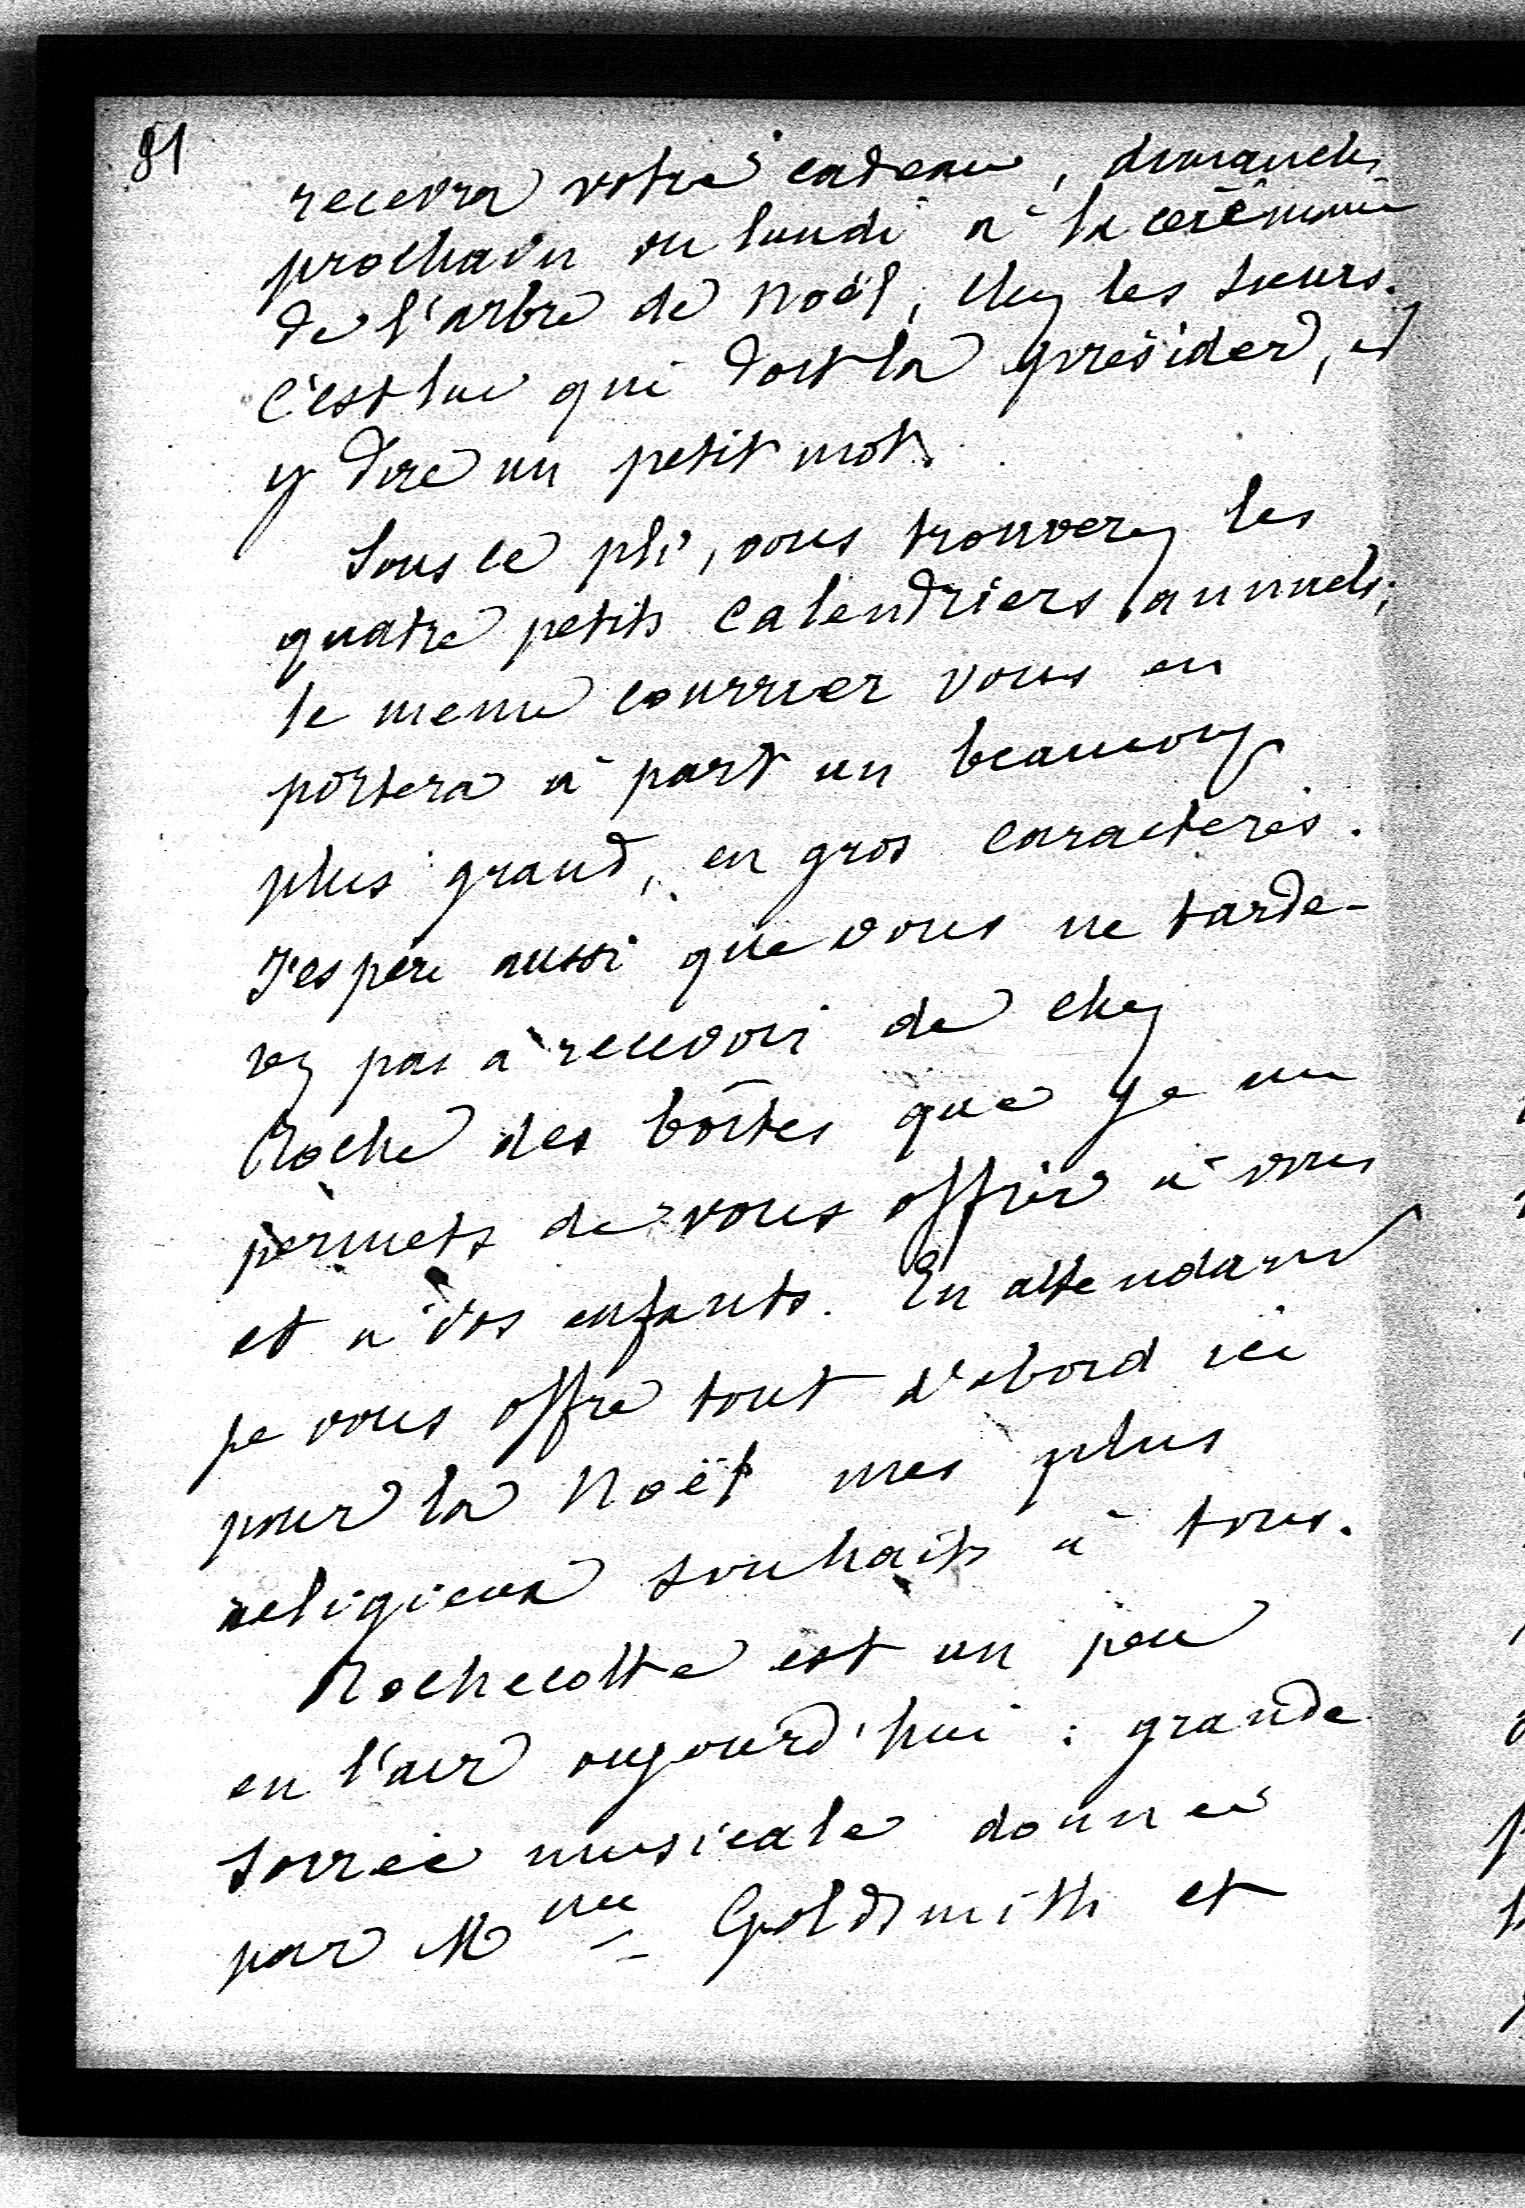 81
recevra votre cadeau, dimanche
prochain ou lundi à la cérémonie
de l'arbre de Noël, chez les sœurs.
C'est lui qui doit la présider, et
y dire un petit mot.
Sous ce pli, vous trouverez les
quatre petits calendriers annuels;
le même courrier vous en
portera à part un beaucoup
plus grand, en gros caractères.
J'espère aussi que vous ne tarde-
rez pas à recevoir de chez
Roche des boîtes que je me
permets de vous offrir à vous
et à vos enfants. En attendant
je vous offre tout d'abord ici
pour la Noël mes plus
religieux souhaits à tous.
Rochecotte est un peu
en l'air aujourd'hui : grande
soirée musicale donnée
par Mme Goldsmith et